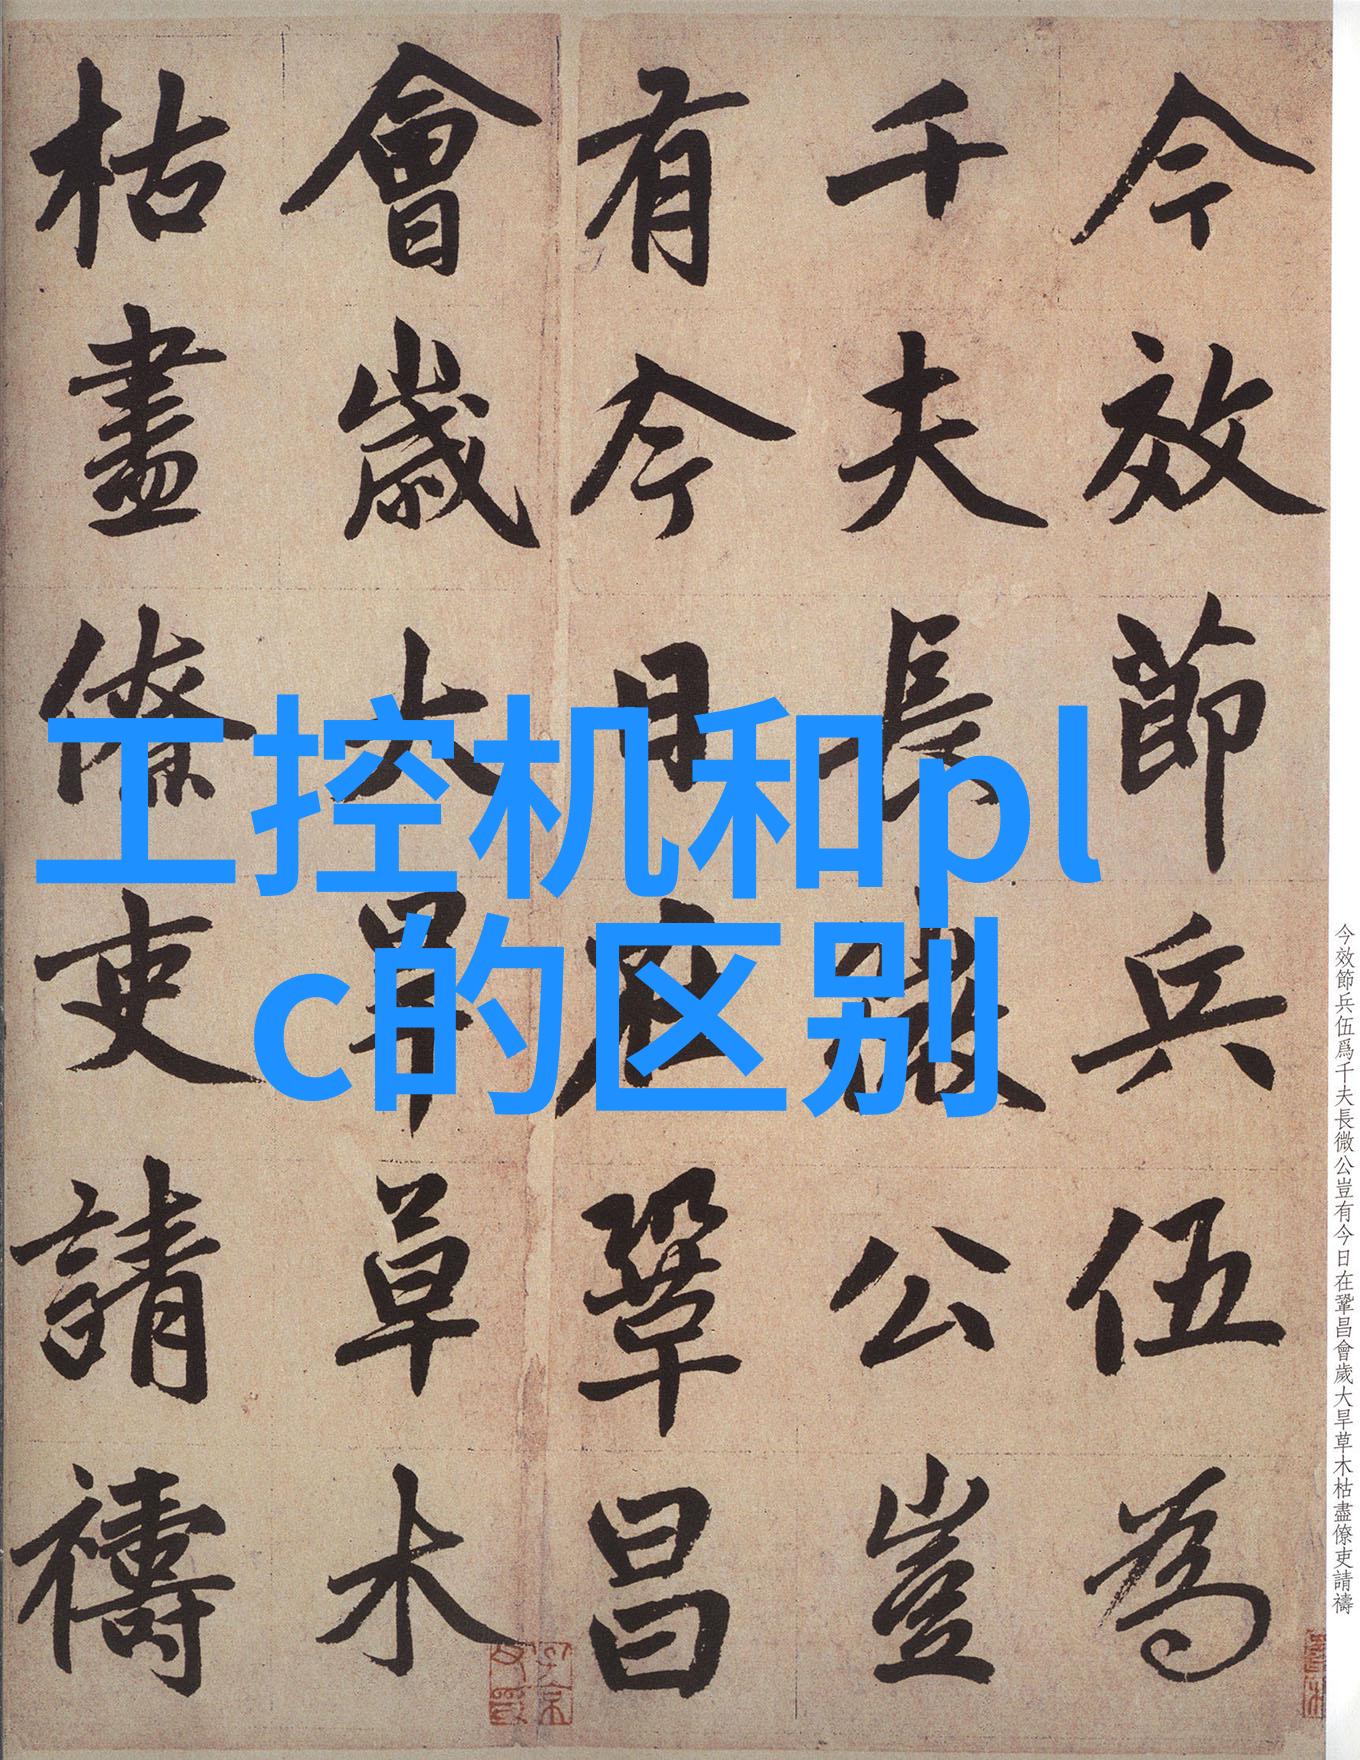 今效節兵伍為
千夫長微公豈
有今日在鞏昌
會歲大旱草木
枯盡僚吏請禱
工控机和pl
c的区别
今效節兵伍爲千夫長微公豈有今日在鞏昌會歲大旱草木枯盡僚吏請禱